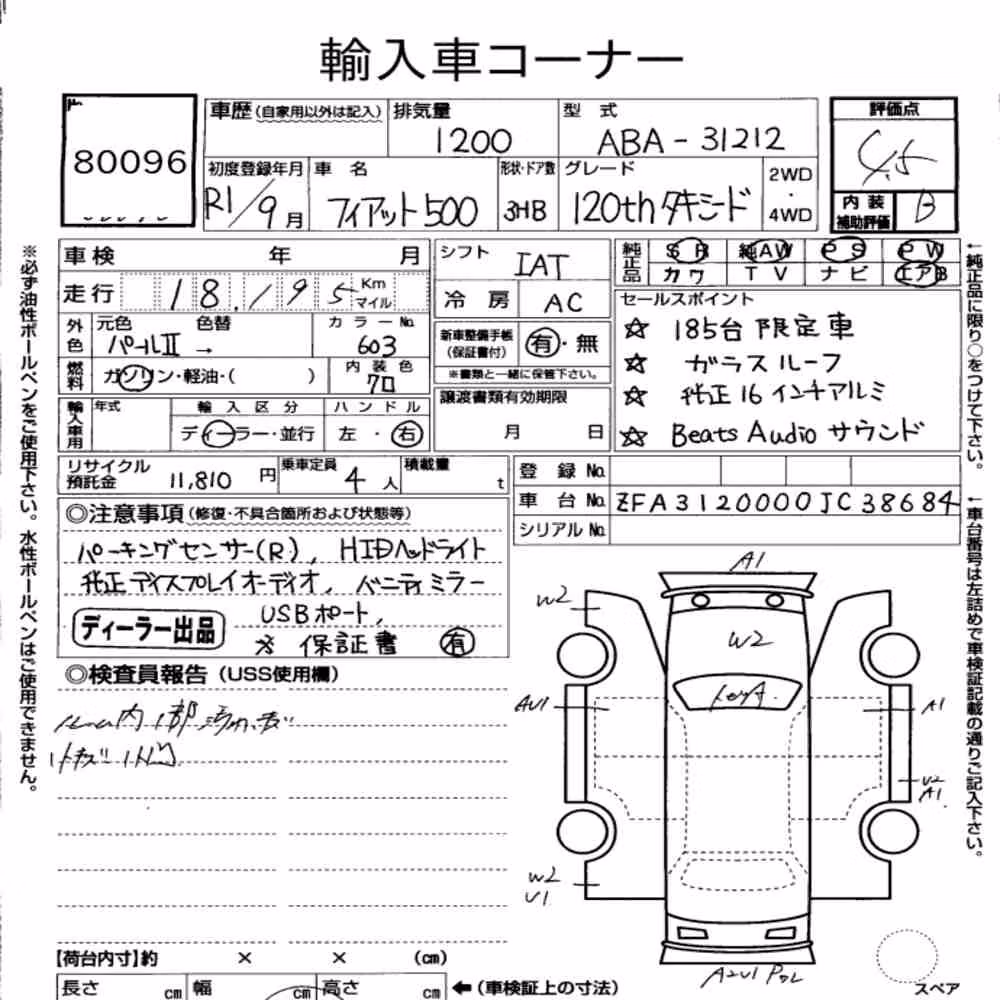 輸入車コーナー
80096
車歴(自家用以外は記入)
排気量
1200
型 式
ABA-31212
評価点
4.5
初度登録年月
R1/9月
車 名
フィアット500
形状・ドア数
3HB
グレード
120th タキシード
2WD
・
4WD
内装
補助評価
B
※必ず油性ボールペンをご使用下さい。水性ボールペンはご使用できません。
車検 年 月
走行 18,195 Km
マイル
外色
元色 色替
パールⅡ →
カラーNo.
603
燃料
ガソリン・軽油・( )
内装色
クロ
輸入車用
年式
輸入区分
ディーラー・並行
ハンドル
左・右
シフト
IAT
冷房
AC
新車整備手帳
(保証書付)
有・無
※書類と一緒に保管下さい。
譲渡書類有効期限
月 日
純正品
SR 純AW PS PW
カワ TV ナビ エアB
セールスポイント
☆ 185台 限定車
☆ ガラスルーフ
☆ 純正16インチアルミ
☆ Beats Audio サウンド
←純正品に限り○をつけて下さい。
リサイクル
預託金
11,810 円
乗車定員
4人
積載量
t
登録No.
車台No. ZFA3120000JC38684
シリアルNo.
←車台番号は左詰めで車検証記載の通りご記入下さい。
◎注意事項(修復・不具合箇所および状態等)
パーキングセンサー(R), HIDヘッドライト
純正ディスプレイオーディオ, バニティミラー
USBポート,
ディーラー出品
※ 保証書 有
◎検査員報告(USS使用欄)
A1
W2
W2
AU1
A1
U2
A1
W2
U1
【荷台内寸】約 × × (cm)
長さ cm 幅 cm 高さ cm
←(車検証上の寸法)
スペア